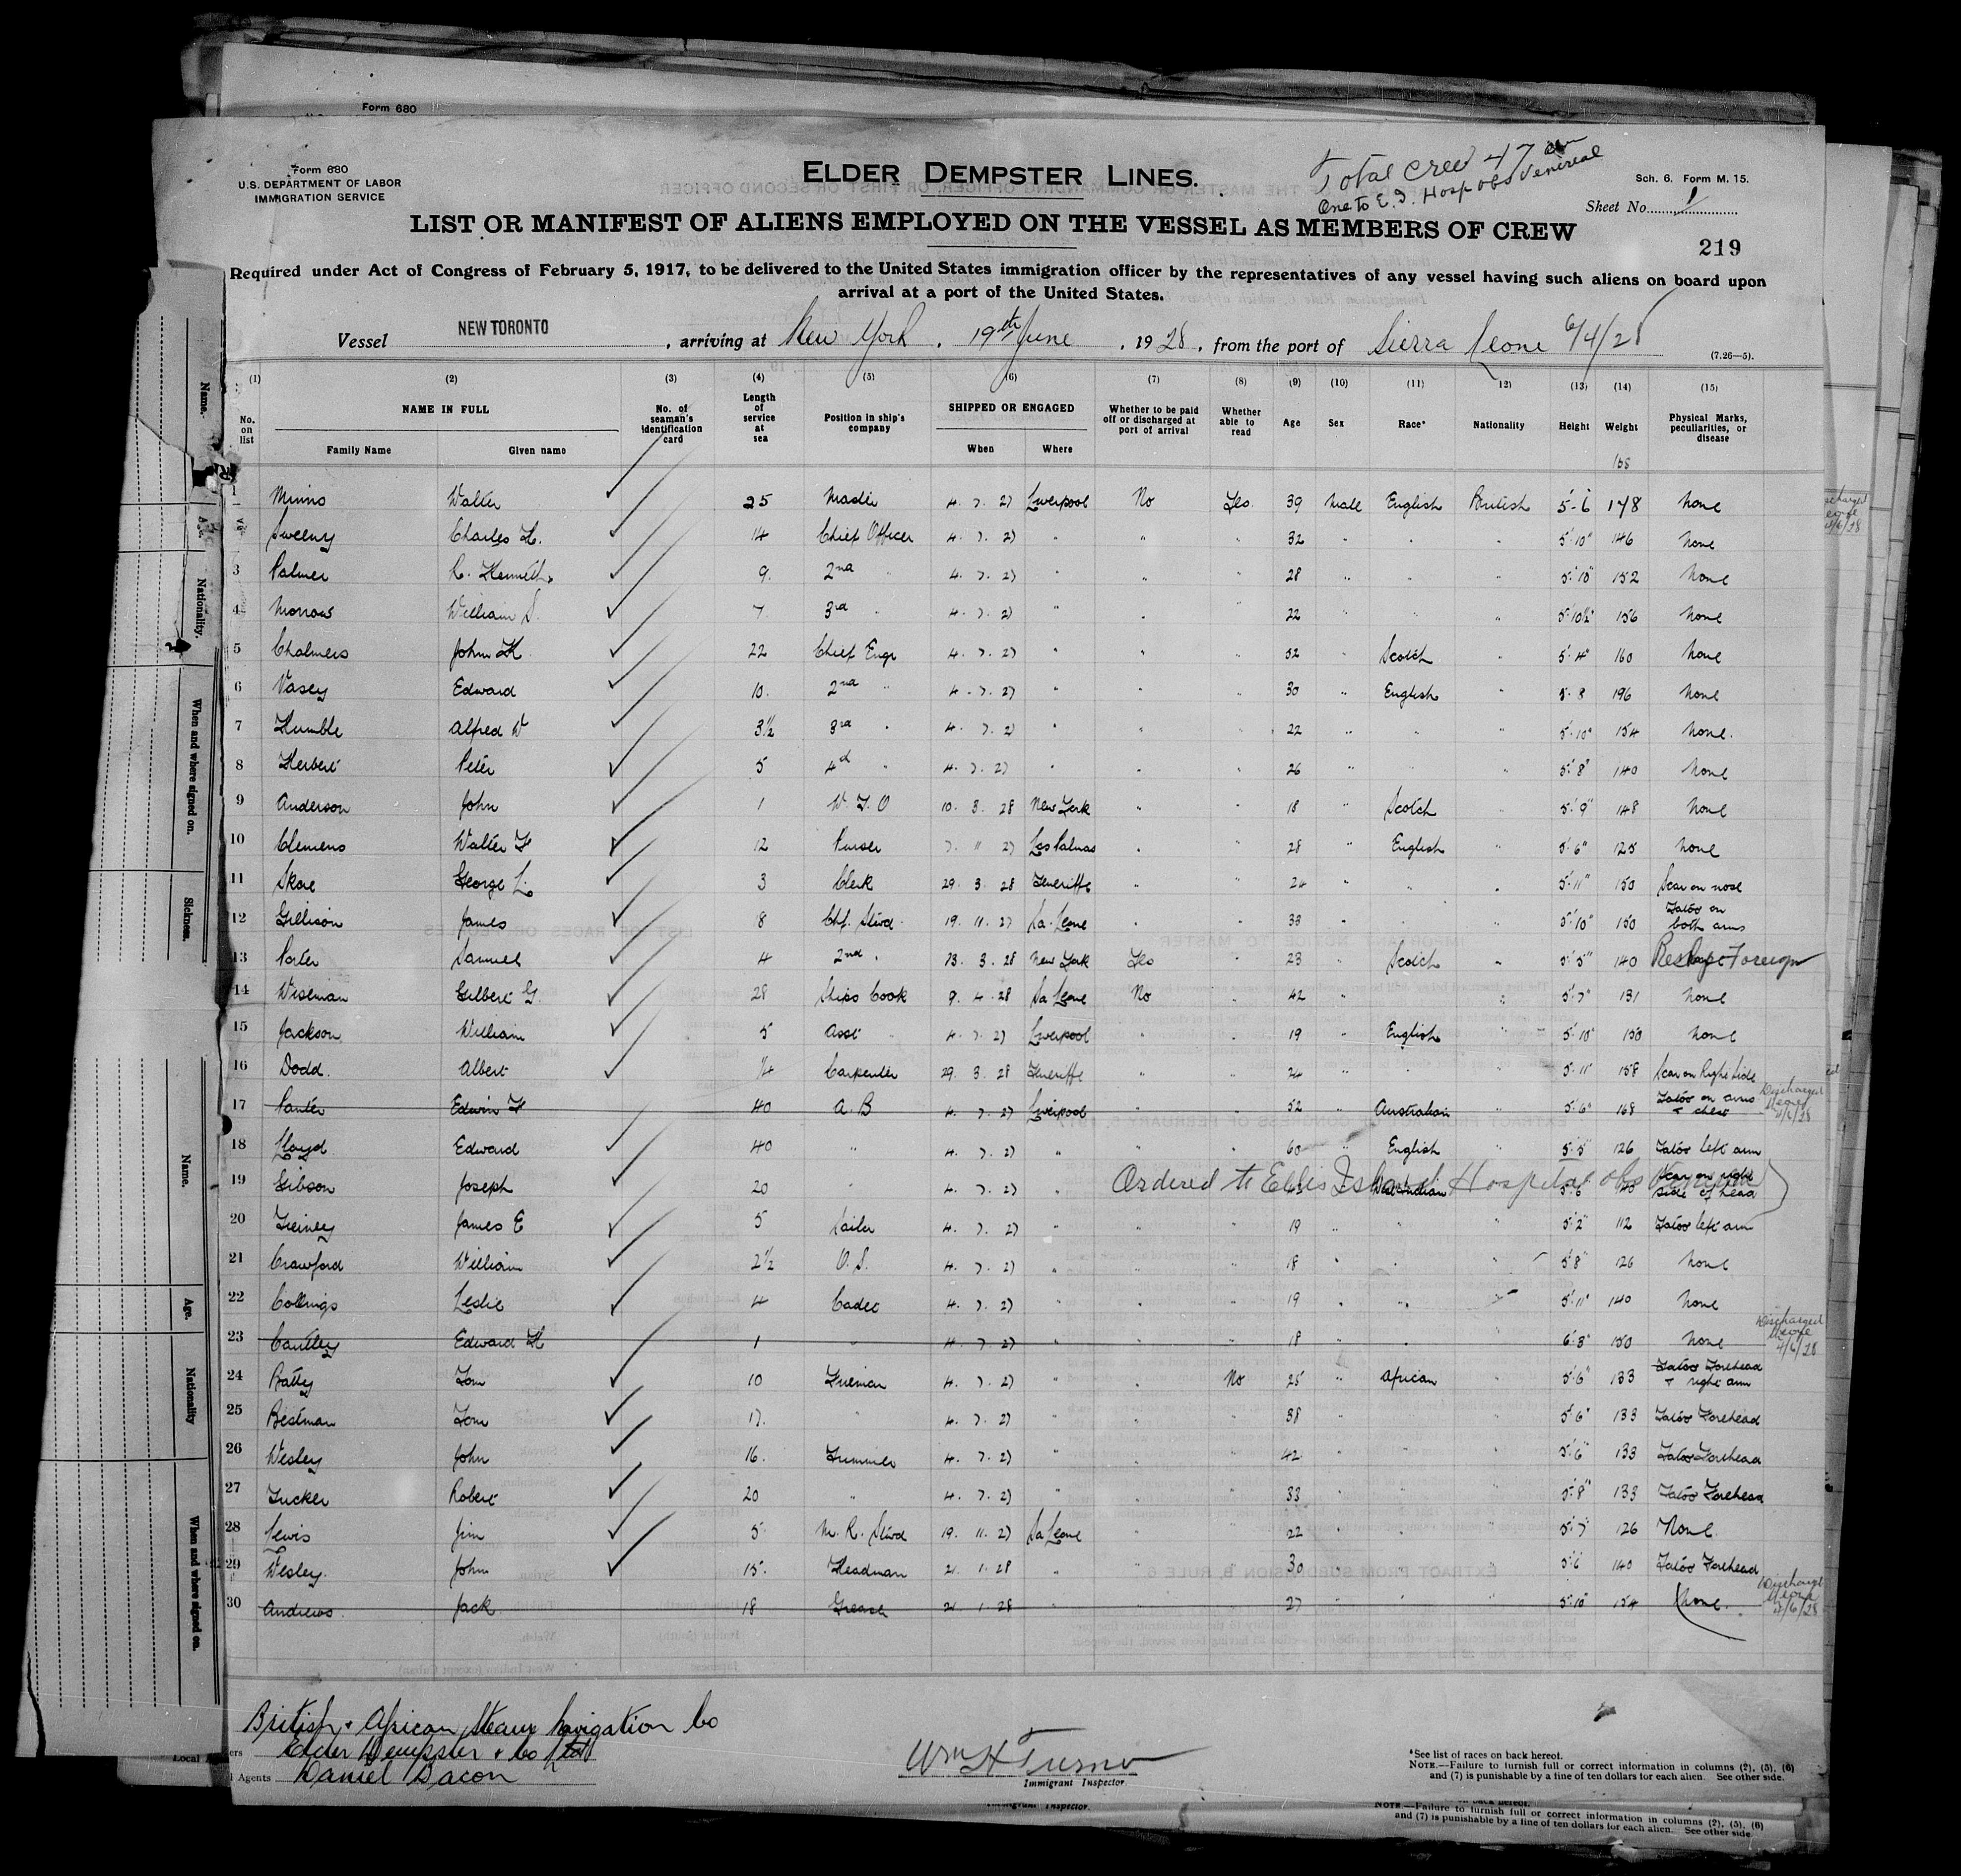 Form 680
Form 680
U.S. DEPARTMENT OF LABOR
IMMIGRATION SERVICE
ELDER DEMPSTER LINES.
Total crew 47
One to E.I. Hosp obs Venereal
Sch. 6. Form M. 15.
Sheet No. 1
LIST OR MANIFEST OF ALIENS EMPLOYED ON THE VESSEL AS MEMBERS OF CREW
219
Required under Act of Congress of February 5, 1917, to be delivered to the United States immigration officer by the representatives of any vessel having such aliens on board upon
arrival at a port of the United States.
Vessel NEW TORONTO, arriving at New York, 19th June, 1928, from the port of Sierra Leone 6/4/28
(7.26—5).
(1) (2) (3) (4) (5) (6) (7) (8) (9) (10) (11) (12) (13) (14) (15)
No. on list NAME IN FULL Family Name Given name No. of seaman's identification card Length of service at sea Position in ship's company SHIPPED OR ENGAGED When Where Whether to be paid off or discharged at port of arrival Whether able to read Age Sex Race* Nationality Height Weight Physical Marks, peculiarities, or disease
168
1 Walter 25 Master 4. 7. 27 Liverpool No Yes 39 Male English British 5-6 178 None
2 Sweeny Charles H. 14 Chief Officer 4. 7. 27 " " " 32 " " " 5'10" 146 None
3 Palmer R. Kenneth 9. 2nd " 4. 7. 27 " " " 28 " " " 5'10" 152 None
4 Morrow William S. 7 3rd " 4. 7. 27 " " " 22 " " " 5'10½" 156 None
5 Chalmers John H 22 Chief Engr 4. 7. 27 " " " 52 " Scotch " 5'4" 160 None
6 Vasey Edward 10. 2nd " 4. 7. 27 " " " 30 " English " 5'8 196 None
7 Humble Alfred W 3½ 3rd " 4. 7. 27 " " " 22 " " " 5'10" 154 None.
8 Herbert Peter 5 4d " 4. 7. 27 " " " 26 " " " 5'8" 140 None
9 Anderson John 1 W.T.O 10. 3. 28 New York " " 18 " Scotch " 5'9" 148 None
10 Clemens Walter F 12 Purser 7. 11 27 Las Palmas " " 28 " English " 5'6" 125 None
11 Skae George L. 3 Clerk 29. 3. 28 Teneriffe " " 24 " " " 5'11" 150 Scar on nose
12 Gillison James 8 Chf. Stwd. 19. 11. 27 Sa. Leone " " 33 " " " 5'10" 150 Tatoo on both arms
13 Porter Samuel 4 2nd " 13. 3. 28 New York Yes " 23 " Scotch " 5'5" 140 Reship Foreign
14 Wiseman Gilbert G. 28 Ships Cook 9. 4. 28 Sa Leone No " 42 " " 5'7" 131 None
15 Jackson William 5 Asst " 4. 7. 27 Liverpool " " 19 " English " 5'10" 150 None
16 Dodd. Albert ¼ Carpenter 29. 3. 28 Teneriffe " " 24 " " " 5'11" 158 Scar on Right Side
17 Edwin F 40 A.B 4. 7. 27 Liverpool " " 52 " Australian " 5'6" 168 Tatoo on arms + chest Discharged 4/6/28
18 Lloyd. Edward 40 " 4. 7. 27 " " " 60 " English " 5'5" 126 Tatoo left arm
19 Gibson Joseph 20 " 4. 7. 27 " Ordered to Ellis Island Hospital obs West Indian 5'6 Scar on right side of head
20 James E 5 Sailor 4. 7. 27 " " " 19 " " " 5'2" 112 Tatoo left arm
21 Crawford William 2½ O.S. 4. 7. 27 " " " 18 " " " 5'8" 126 None
22 Collings Leslie 4 Cadet 4. 7. 27 " " " 19 " " " 5'11" 140 None
23 Cautley Edward H 1 " 4. 7. 27 " " " 18 " " " 6'3" 150 None Discharged 4/6/28
24 Batty Tom 10 Fireman 4. 7. 27 " " No 25 " African " 5'6" 133 Tatoo Forehead + right arm
25 Bestman Tom 17. " 4. 7. 27 " " " 38 " " " 5'6" 133 Tatoo Forehead
26 Wesley John 16. Trimmer 4. 7. 27 " " " 42 " " " 5'6" 133 Tatoo Forehead
27 Tucker Robert 20 " 4. 7. 27 " " " 33 " " " 5'8" 133 Tatoo Forehead
28 Lewis Jim 5 M.R. Stwd 19. 11. 27 Sa Leone " " 22 " " " 5'7" 126 None.
29 Wesley. John 15. Headman 21. 1. 28 " " " 30 " " " 5'6 140 Tatoo Forehead
30 Andrews Jack 18 Greaser 21. 1. 28 " " " 27 " " " 5'10" 154 None. Discharged 4/6/28
British & African Steam Navigation Co
Elder Dempster & Co Ltd
Agents Daniel Bacon
Wm H Turner
Immigrant Inspector
*See list of races on back hereof.
NOTE.—Failure to furnish full or correct information in columns (2), (5), (6)
and (7) is punishable by a fine of ten dollars for each alien. See other side.
Immigrant Inspector
NOTE.—Failure to furnish full or correct information in columns (2), (5), (6)
and (7) is punishable by a fine of ten dollars for each alien. See other side.
Name.
Age.
Nationality.
When and where signed on.
Sickness.
Name.
Age.
Nationality
When and where signed on.